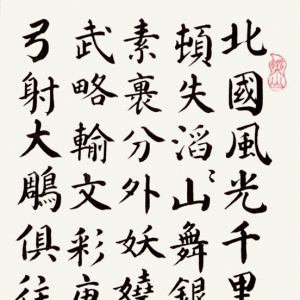 北國風光千里
頓失滔〻山舞銀
素裹分外妖嬈
武略輸文彩唐
弓射大鵰俱往